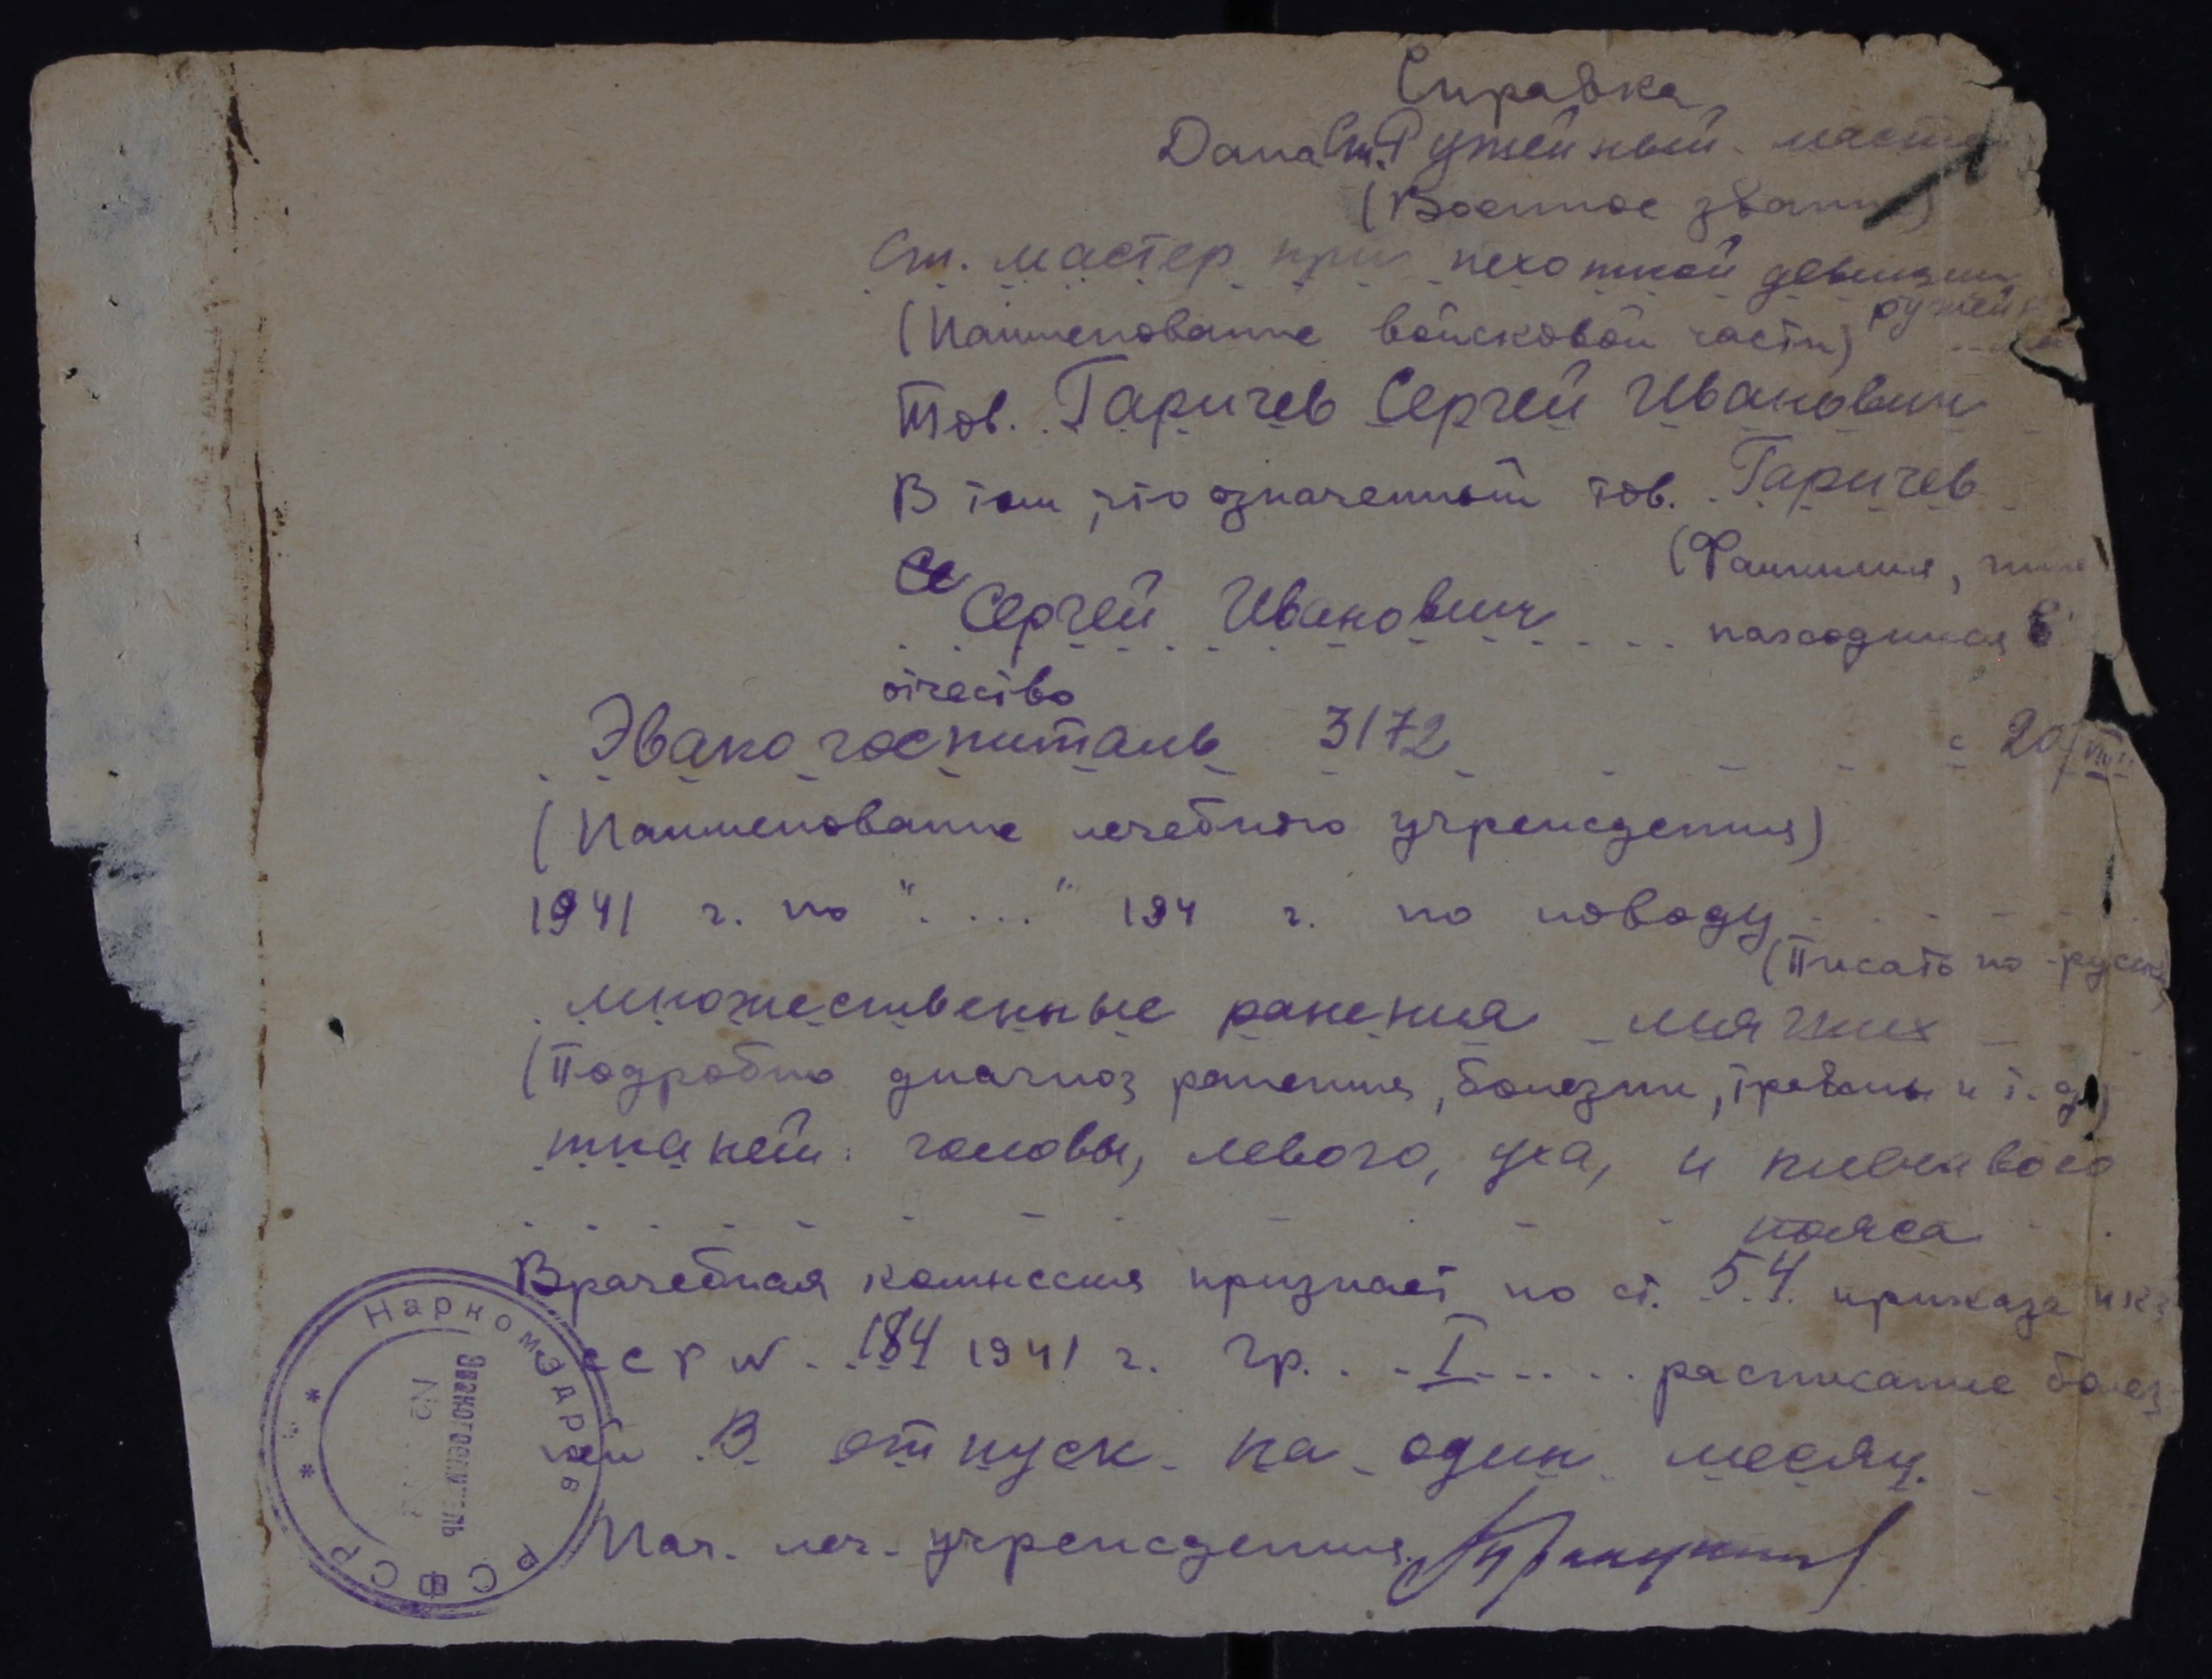 Справка
Дана Ст. Ружейный масте
(Военное звание)
Ст. мастер при пехотной девизии
ружейн
(Наименование войсковой части)
Тов. Гаричев Сергей Иванович
В том, что означенный тов. Гаричев
(Фамилия, имя
Се Сергей Иванович находился в
отчество
Эвакогоспиталь 3172 с 20/VIII
(Наименование лечебного учреждения)
1941 г. по "....." 194 г. по поводу
(Писать по-русски)
множественные ранения мягких
(Подробно диагноз ранения, болезни, травмы и т. д.)
тканей: головы, левого, уха, и плечевого
пояса
Врачебная комиссия признает по ст. 54 приказа НКО
СССР N 184 1941 г. Гр. I расписание болез
ней В отпуск на один месяц.
Нач. леч. учреждения
Наркомздрав
РСФСР
Эвакогоспиталь
№